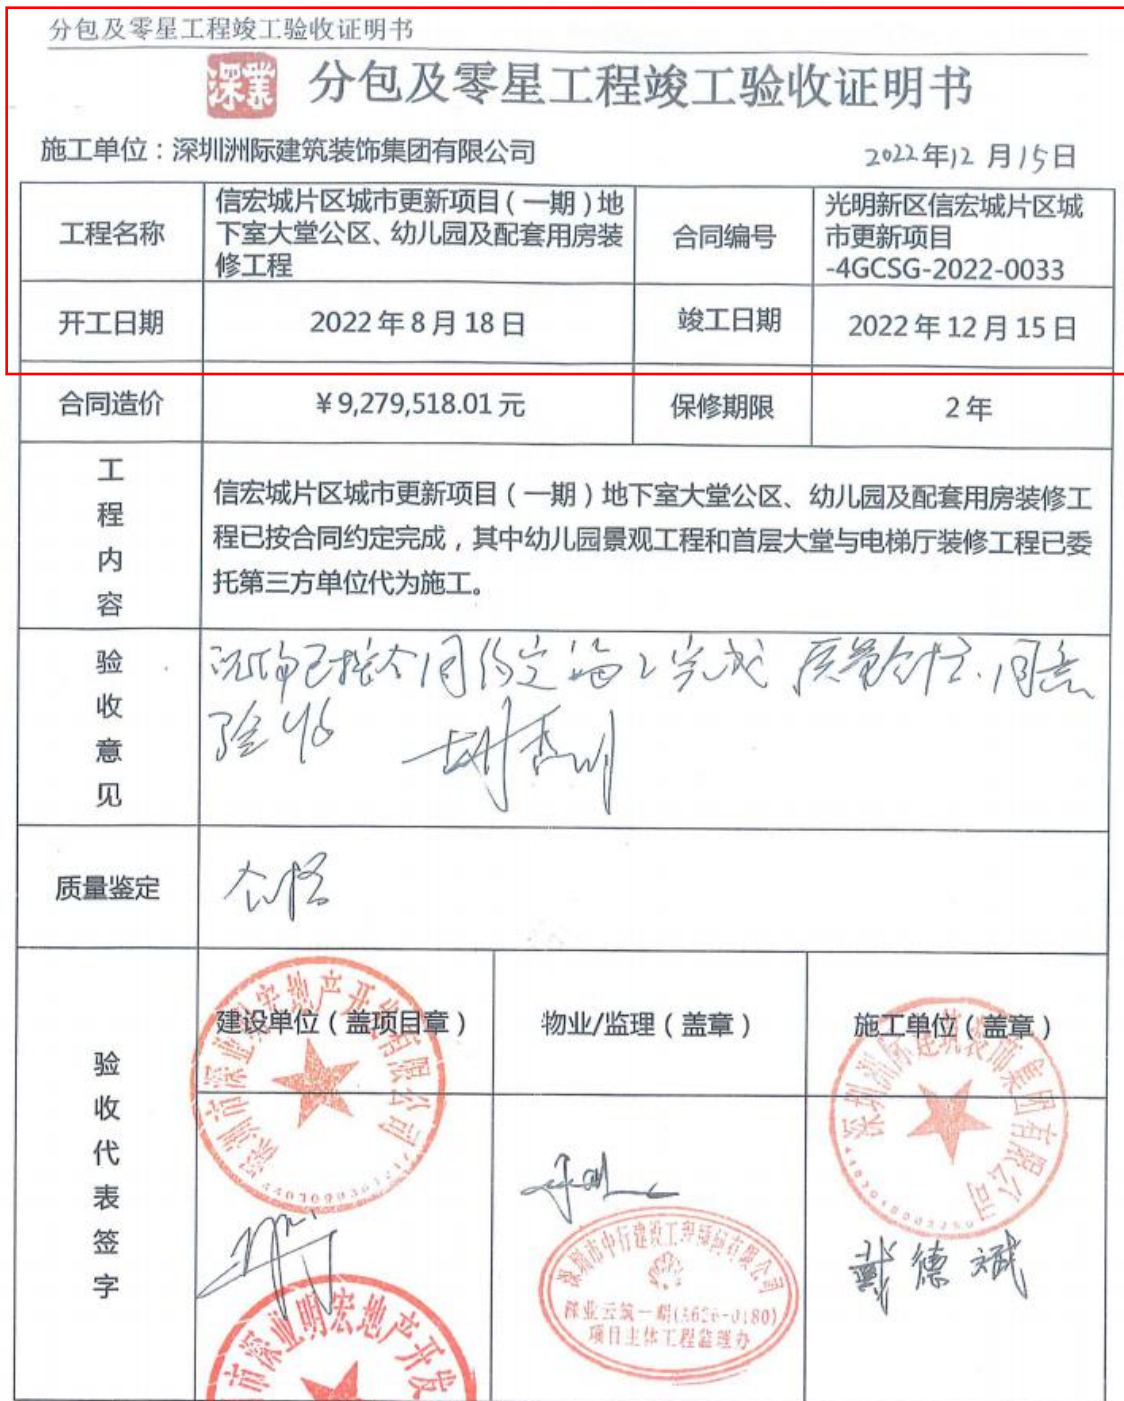 分包及零星工程竣工验收证明书
深業 分包及零星工程竣工验收证明书
施工单位：深圳洲际建筑装饰集团有限公司 2022年12月15日
工程名称
信宏城片区城市更新项目（一期）地
下室大堂公区、幼儿园及配套用房装
修工程
合同编号
光明新区信宏城片区城
市更新项目
-4GCSG-2022-0033
开工日期 2022年8月18日 竣工日期 2022年12月15日
合同造价 ¥9,279,518.01元 保修期限 2年
工程内容
信宏城片区城市更新项目（一期）地下室大堂公区、幼儿园及配套用房装修工
程已按合同约定完成，其中幼儿园景观工程和首层大堂与电梯厅装修工程已委
托第三方单位代为施工。
验收意见
已按合同约定施工完成 质量合格、同意
验收
质量鉴定 合格
验收代表签字
建设单位（盖项目章） 物业/监理（盖章） 施工单位（盖章）
深圳市深业明宏地产开发有限公司
深圳洲际建筑装饰集团有限公司
深圳市中行建设工程顾问有限公司
深业云筑一期
项目主体工程监理办
戴德斌
市深业明宏地产开发